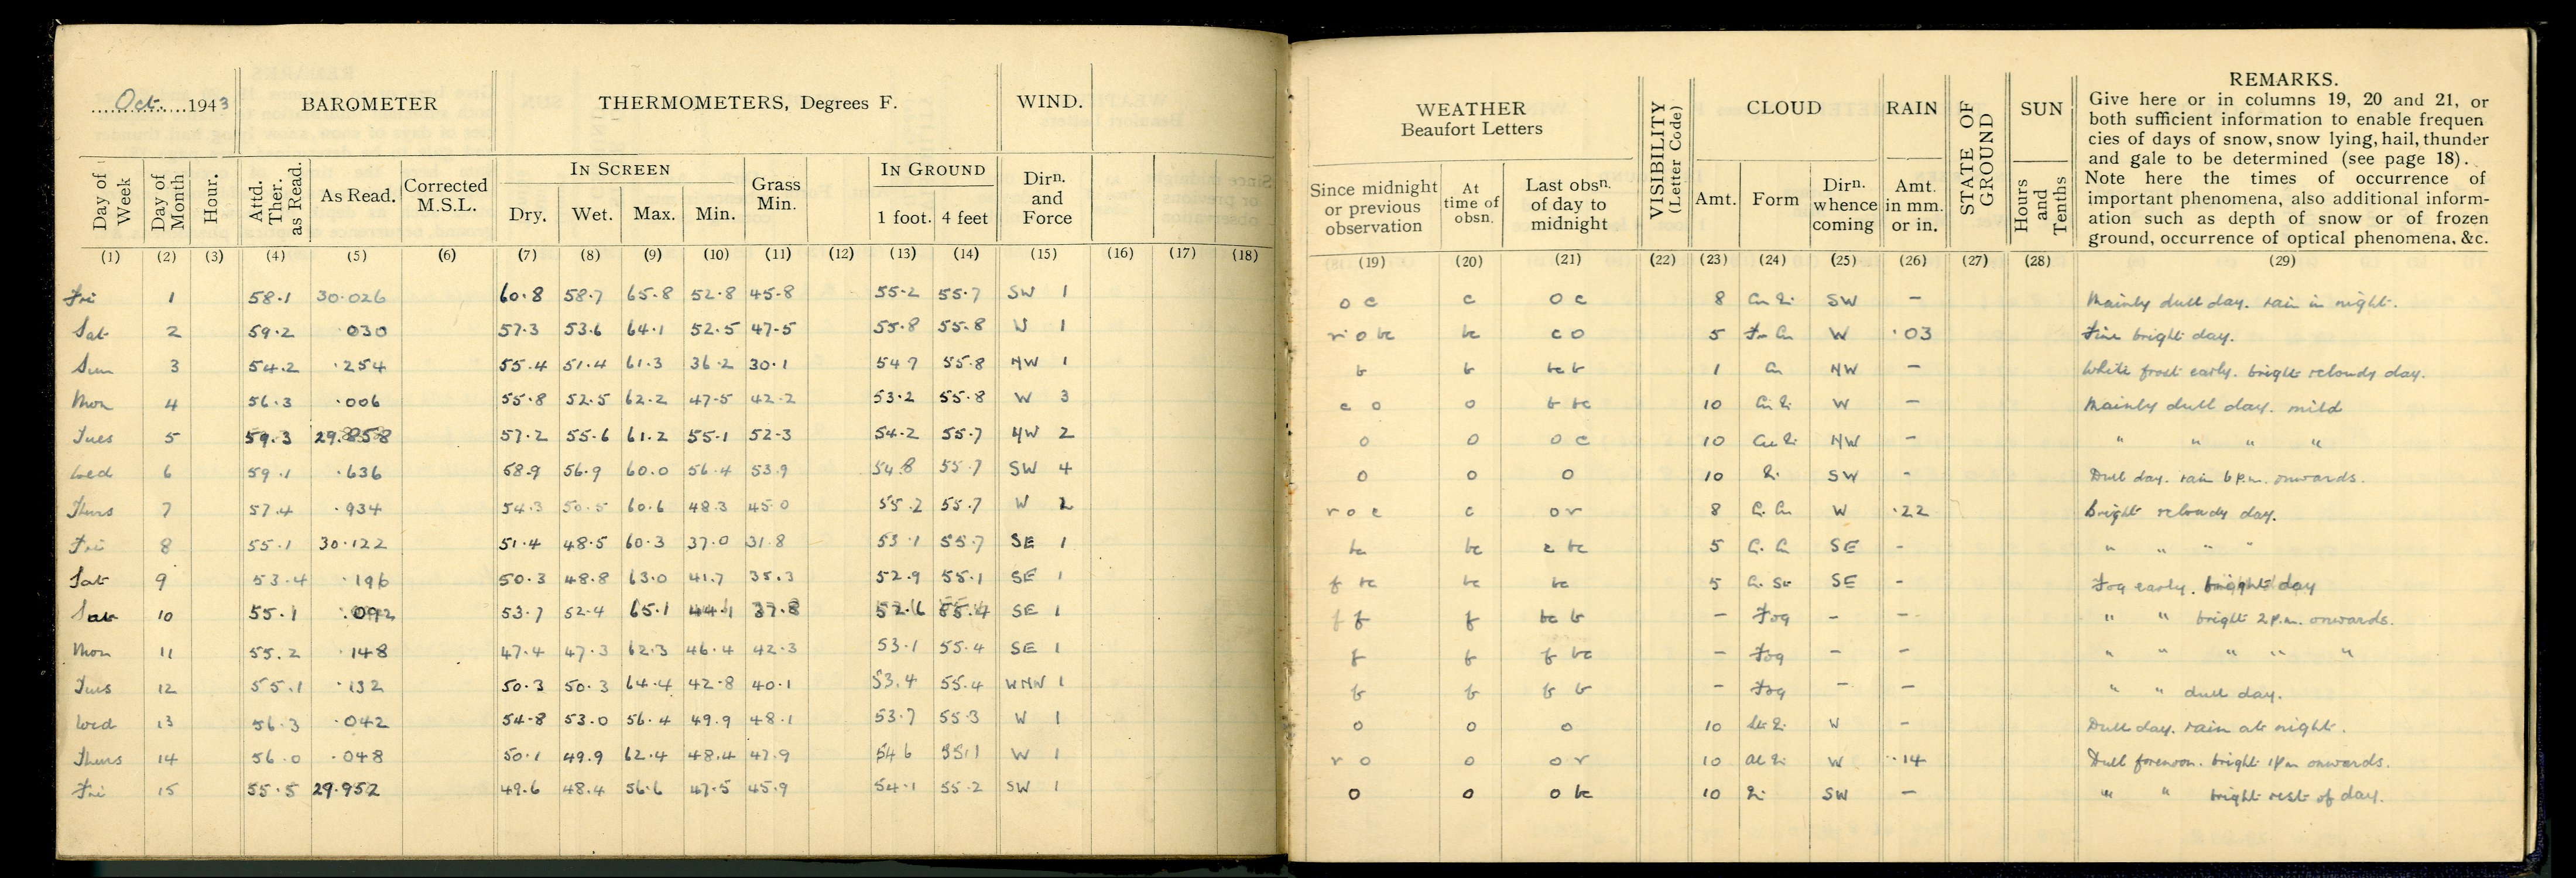 Oct. 1943 BAROMETER THERMOMETERS, Degrees F. WIND.
IN SCREEN IN GROUND
Day of Week Day of Month Hour. Attd. Ther. as Read. As Read. Corrected M.S.L. Dry. Wet. Max. Min. Grass Min. 1 foot. 4 feet Dirn. and Force
(1) (2) (3) (4) (5) (6) (7) (8) (9) (10) (11) (12) (13) (14) (15) (16) (17) (18)
Fri 1 58.1 30.026 60.8 58.7 65.8 52.8 45.8 55.2 55.7 SW 1
Sat 2 59.2 .030 57.3 53.6 64.1 52.5 47.5 55.8 55.8 W 1
Sun 3 54.2 .254 55.4 51.4 61.3 36.2 30.1 54 7 55.8 NW 1
Mon 4 56.3 .006 55.8 52.5 62.2 47.5 42.2 53.2 55.8 W 3
Tues 5 59.3 29.858 57.2 55.6 61.2 55.1 52.3 54.2 55.7 NW 2
Wed 6 59.1 .636 58.9 56.9 60.0 56.4 53.9 54.8 55.7 SW 4
Thurs 7 57.4 .934 54.3 50.5 60.6 48.3 45.0 55.2 55.7 W 2
Fri 8 55.1 30.122 51.4 48.5 60.3 37.0 31.8 53.1 55.7 SE 1
Sat 9 53.4 .196 50.3 48.8 63.0 41.7 35.3 52.9 55.1 SE 1
10 55.1 .092 53.7 52.4 65.1 44.1 37.8 52.6 55.4 SE 1
Mon 11 55.2 .148 47.4 47.3 62.3 46.4 42.3 53.1 55.4 SE 1
Tues 12 55.1 .132 50.3 50.3 64.4 42.8 40.1 53.4 55.4 WNW 1
Wed 13 56.3 .042 54.8 53.0 56.4 49.9 48.1 53.7 55.3 W 1
Thurs 14 56.0 .048 50.1 49.9 62.4 48.4 47.9 54 6 55.1 W 1
Fri 15 55.5 29.952 49.6 48.4 56.6 47.5 45.9 54.1 55.2 SW 1
WEATHER Beaufort Letters VISIBILITY (Letter Code) CLOUD RAIN STATE OF GROUND SUN REMARKS.
Give here or in columns 19, 20 and 21, or
both sufficient information to enable frequen
cies of days of snow, snow lying, hail, thunder
and gale to be determined (see page 18).
Note here the times of occurrence of
important phenomena, also additional inform-
ation such as depth of snow or of frozen
ground, occurrence of optical phenomena, &c.
Since midnight or previous observation At time of obsn. Last obsn. of day to midnight Amt. Form Dirn. whence coming Amt. in mm. or in. Hours and Tenths
(19) (20) (21) (22) (23) (24) (25) (26) (27) (28) (29)
o c c o c 8 SW – Mainly dull day. rain in night.
r o bc bc c o 5 Fr Cu W .03 Fine bright day.
b b bc b 1 Cu NW – White frost early. bright & cloudy day.
c o o b bc 10 W – Mainly dull day. mild
o o o c 10 NW – " " " "
o o o 10 SW - Dull day. rain 6 p.m. onwards.
r o c c o r 8 W .22 Bright & cloudy day.
bc bc bc 5 SE - " " " "
f bc bc bc 5 SE - Fog early. bright day
f f f bc b – Fog – – " " bright 2 p.m. onwards.
f f f bc – Fog – – " " " " "
f f f b – Fog – – " " dull day.
o o o 10 W – Dull day. rain at night.
r o o o r 10 W .14 Dull forenoon. bright 1 pm onwards.
o o o bc 10 SW – " " bright rest of day.